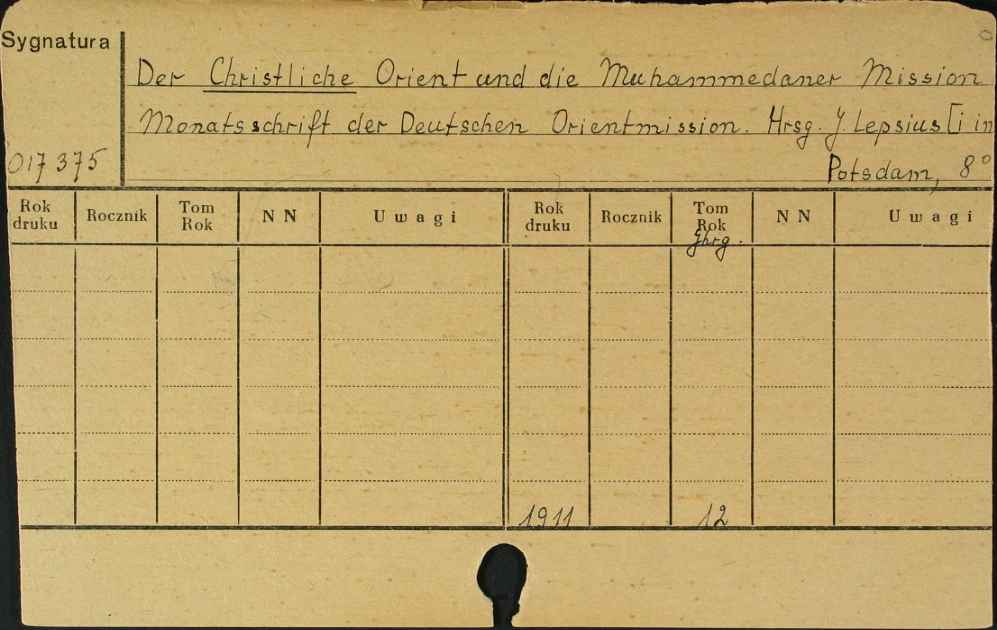 Sygnatura
Der Christliche Orient und die Muhammedaner Mission
Monatsschrift der Deutschen Orientmission. Hrsg. J. Lepsius [i in
017375
Potsdam, 8°
Rok druku Rocznik Tom Rok N N Uwagi Rok druku Rocznik Tom Rok N N Uwagi
Jhrg.
1911 12